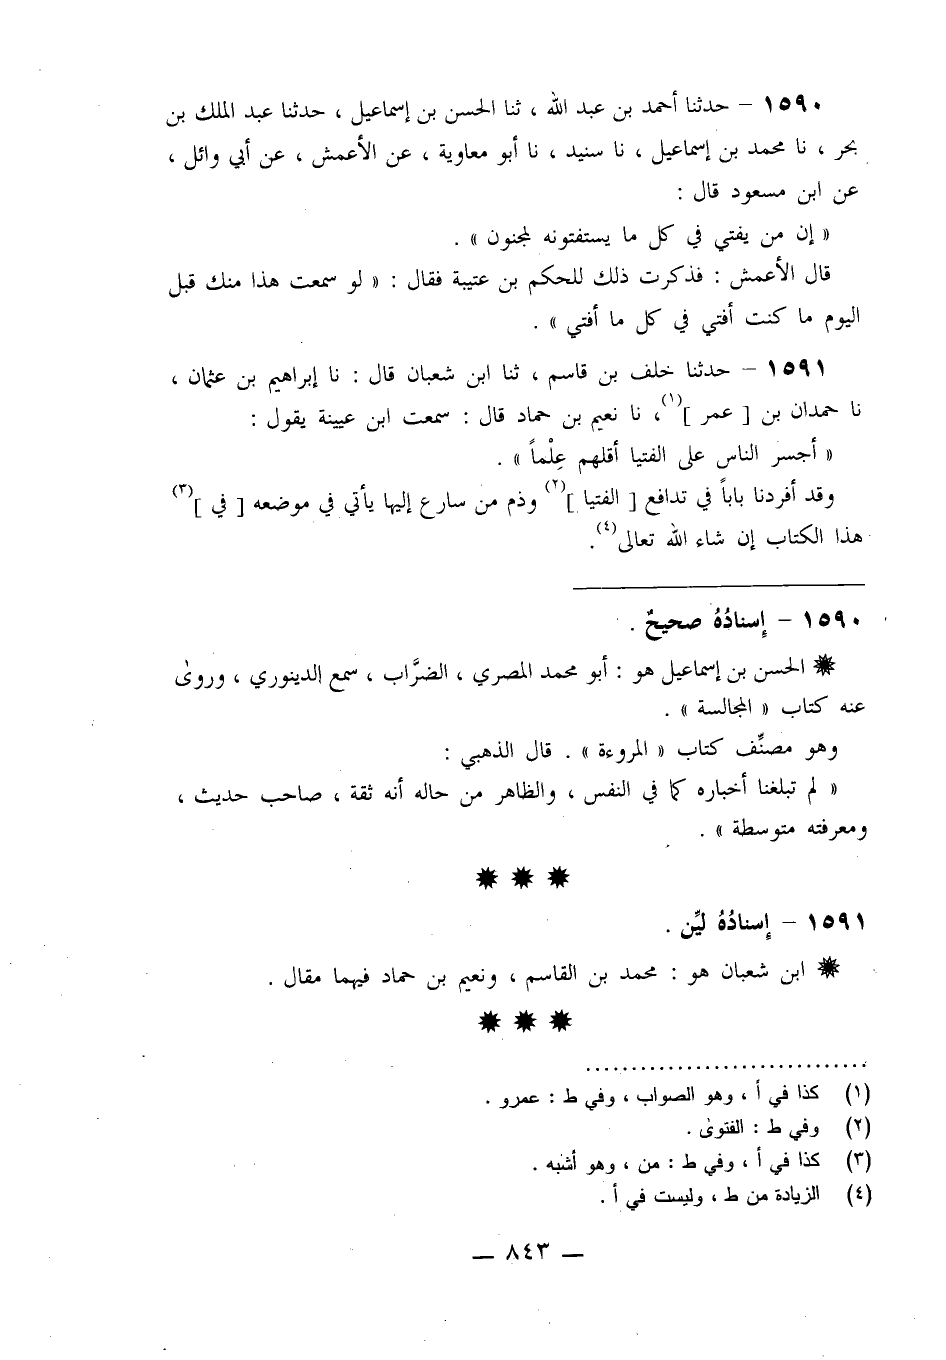 ١٥٩٠ – حدثنا أحمد بن عبد الله ، ثنا الحسن بن إسماعيل ، حدثنا عبد الملك بن
بحر ، نا محمد بن إسماعيل ، نا سنيد ، نا أبو معاوية ، عن الأعمش ، عن أبي وائل ،
عن ابن مسعود قال :
« إن من يفتي في كل ما يستفتونه لمجنون » .
قال الأعمش : فذكرت ذلك للحكم بن عتيبة فقال : « لو سمعت هذا منك قبل
اليوم ما كنت أفتي في كل ما أفتي » .
١٥٩١ – حدثنا خلف بن قاسم ، ثنا ابن شعبان قال : نا إبراهيم بن عثمان ،
نا حمدان بن [ عمر ](١)، نا نعيم بن حماد قال : سمعت ابن عيينة يقول :
« أجسر الناس على الفتيا أقلهم عِلْماً » .
وقد أفردنا باباً في تدافع [ الفتيا ](٢) وذم من سارع إليها يأتي في موضعه [ في ](٣)
هذا الكتاب إن شاء الله تعالى(٤).
١٥٩٠ – إسنادُهُ صحيحٌ .
✹ الحسن بن إسماعيل هو : أبو محمد المصري ، الضرَّاب ، سمع الدينوري ، وروىٰ
عنه كتاب « المجالسة » .
وهو مصنِّف كتاب « المروءة » . قال الذهبي :
« لم تبلغنا أخباره كما في النفس ، والظاهر من حاله أنه ثقة ، صاحب حديث ،
ومعرفته متوسطة » .
✹ ✹ ✹
١٥٩١ – إسنادُهُ ليِّن .
✹ ابن شعبان هو : محمد بن القاسم ، ونعيم بن حماد فيهما مقال .
✹ ✹ ✹
(١) كذا في أ ، وهو الصواب ، وفي ط : عمرو .
(٢) وفي ط : الفتوىٰ .
(٣) كذا في أ ، وفي ط : من ، وهو أشبه .
(٤) الزيادة من ط ، وليست في أ .
— ٨٤٣ —